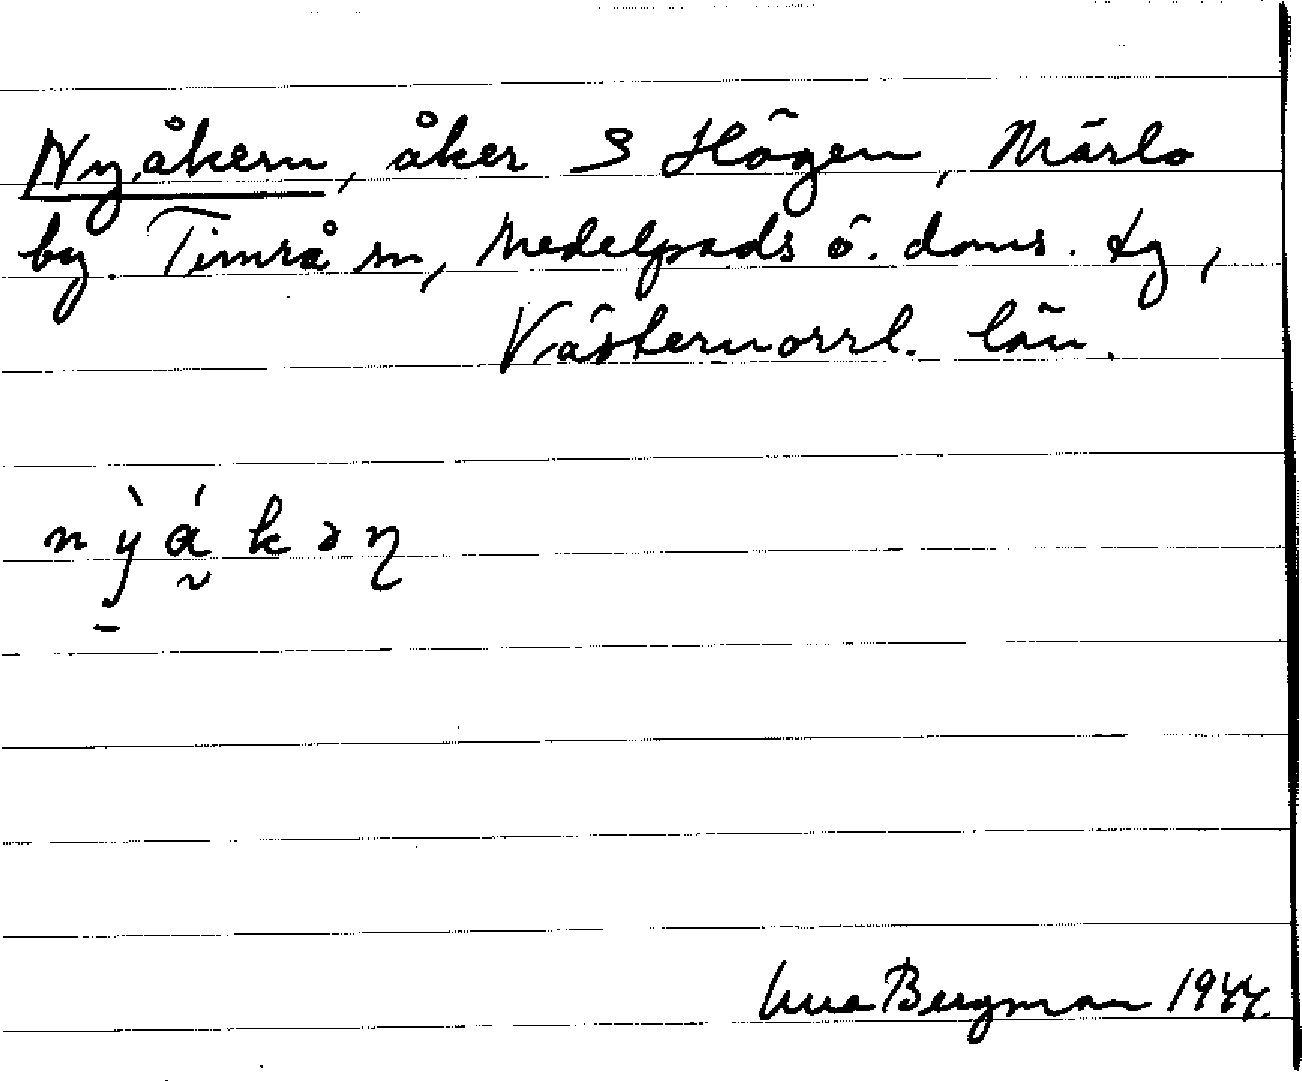 Nyåkern, åker S Högen, Märlo
by. Timrå sn, Medelpads ö. doms. tg,
Västernorrl. län.
n ỳ á k ə ɳ
Bergman 1944.